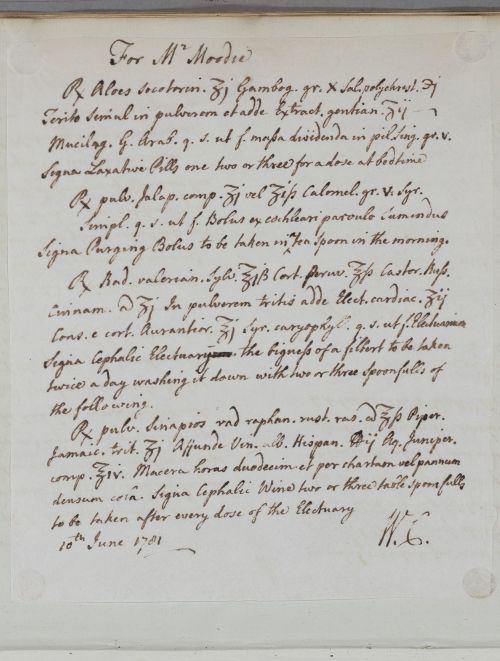 For Mr Moodie
℞ Aloes socotorin. ʒj Gambog. gr. x Sal. polychrest. ℈j
Terito simul in pulverem et adde Extract. gentian. ʒij
Mucilag. G. Arab. q. s. ut f. massa dividenda in pil. sing. gr. v.
Signa Laxative Pills one two or three for a dose at bedtime
℞ pulv. Jalap. comp. ʒj vel ʒiſs Calomel. gr. v. Syr.
Simpl. q. s. ut f. Bolus ex cochleari parvulo Sumendus
Signa Purging Bolus to be taken in a tea spoon in the morning.
℞ Rad. valerian. Sylv. ℥jß Cort. peruv. ℥ſs Castor. Russ.
Cinnam. a ʒj In pulverem tritis adde Elect. cardiac. ℥ij
Cons. e cort. Aurantior. ℥j Syr. caryophyl. q. s. ut f. Electuarium
Signa Cephalic Electuary the bigness of a filbert to be taken
twice a day washing it down with two or three spoonfulls of
the following.
℞ pulv. Sinapios rad raphan. rust. ras. a ℥ſs Piper.
Jamaic. trit. ʒj Affunde Vin. alb. Hispan. ℔ij Aq. Juniper.
comp. ℥iv. Macera horas duodecim et per chartam vel pannum
densum cola. Signa Cephalic Wine two or three table spoonfulls
to be taken after every dose of the Electuary
10th June 1781
W. C.